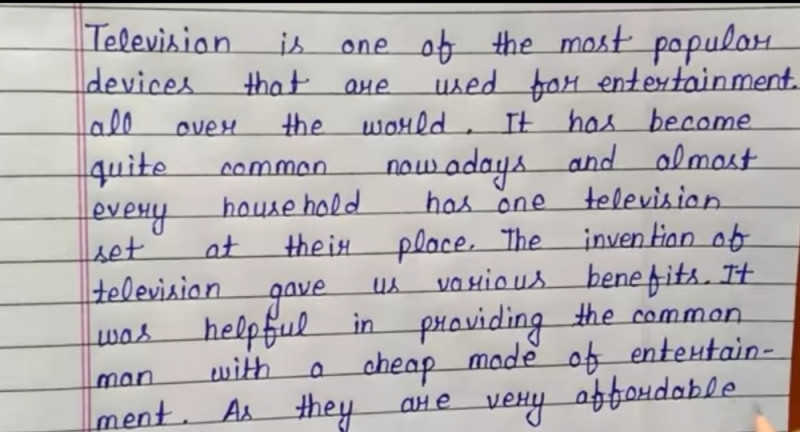 Television is one of the most popular
devices that are used for entertainment.
all over the world. It has become
quite common nowadays and almost
every household has one television
set at their place. The invention of
television gave us various benefits. It
was helpful in providing the common
man with a cheap mode of entertain-
ment. As they are very affordable